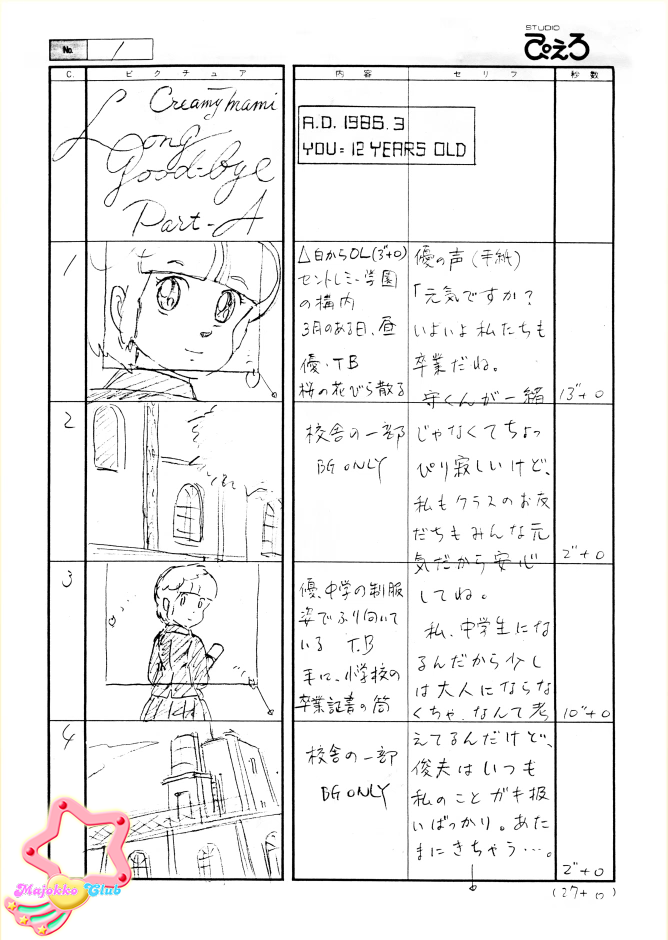 No.
1
STUDIO
ぴえろ
C.
ピクチュア
内容
セリフ
秒数
Creamy mami
Long
Good-bye
Part-A
A.D. 1986. 3
YOU = 12 YEARS OLD
1
△白からOL(3"+0)
セントレミー学園
の構内
3月のある日、昼
優・T.B
桜の花びら散る
優の声(手紙)
「元気ですか?
いよいよ私たちも
卒業だね。
守くんが一緒
13"+0
2
校舎の一部
BG ONLY
じゃなくてちょっ
ぴり寂しいけど、
私もクラスのお友
だちもみんな元
気だから安心
2"+0
3
優、中学の制服
姿でふり向いて
いる T.B
手に、小学校の
卒業証書の筒
してね。
私、中学生にな
るんだから少し
は大人にならな
くちゃ、なんて考
10"+0
4
校舎の一部
BG ONLY
えてるんだけど、
俊夫はいつも
私のことガキ扱
いばっかり。あた
まにきちゃう…。
2"+0
(27+0)
Majokko Club